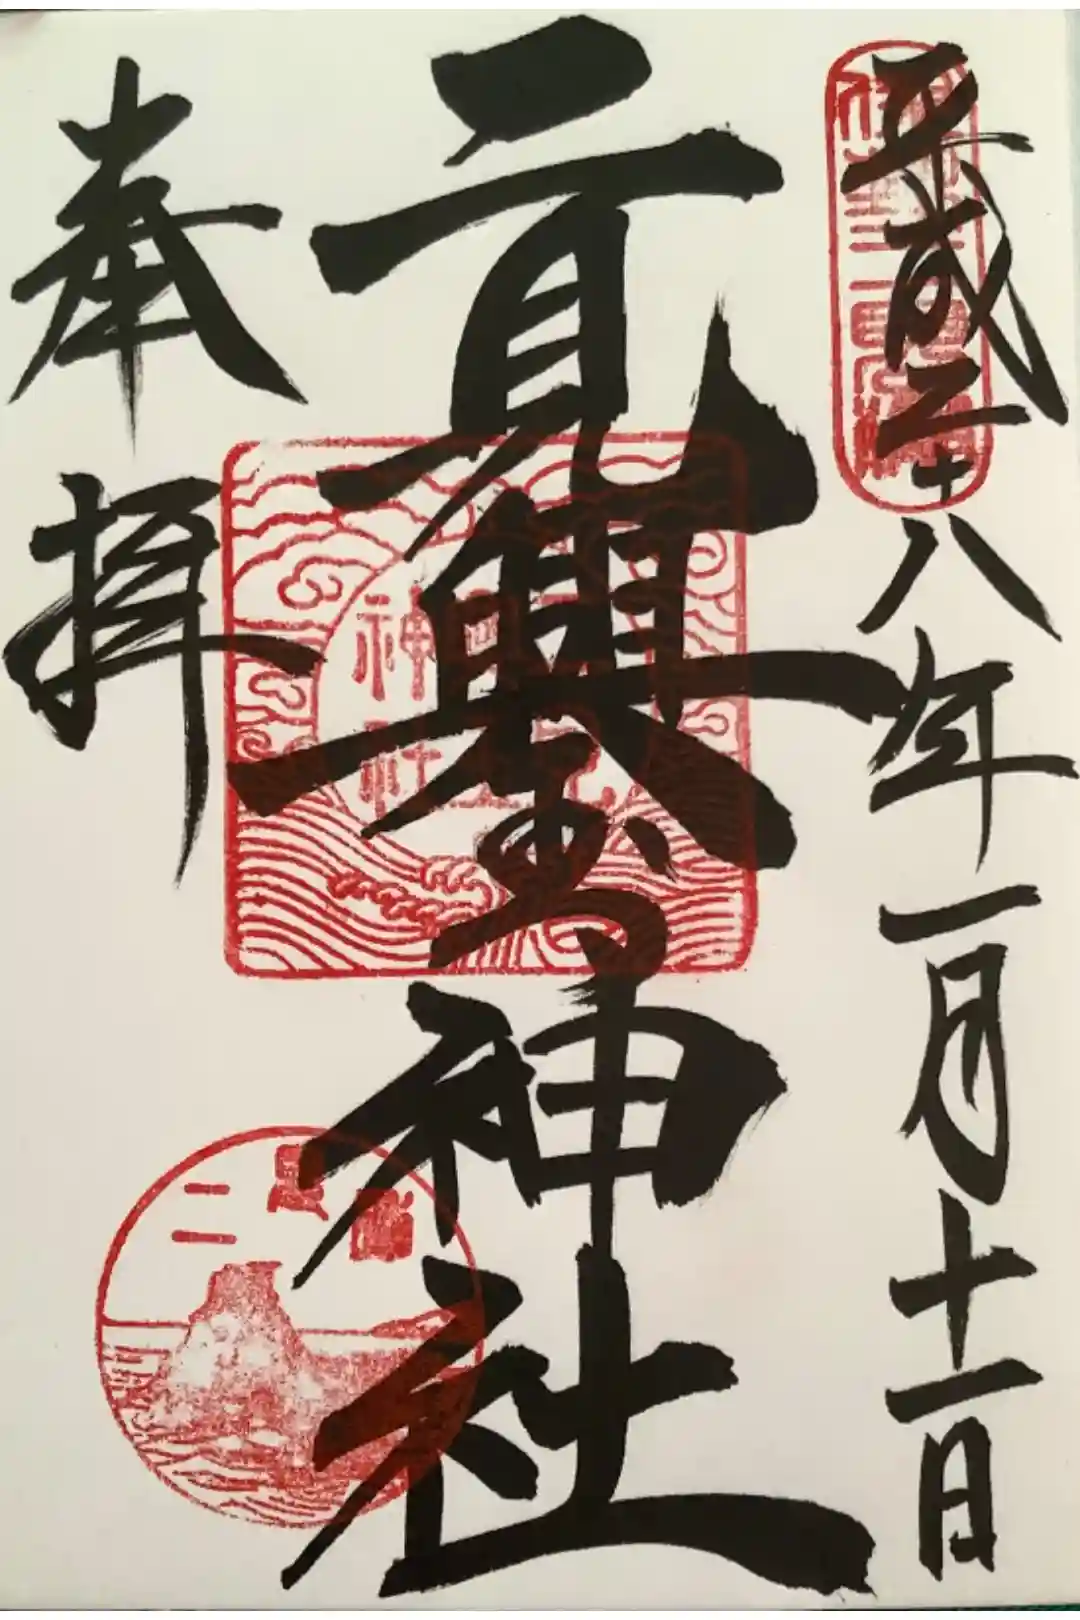 平成二十八年一月十一日
二見興玉神社
奉拝
神社
二見